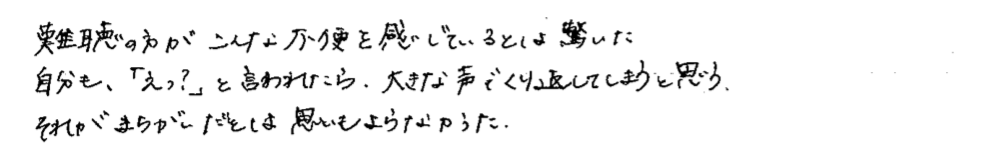 難聴の方がこんな不便を感じているとは驚いた
自分も、「えっ?」と言われたら、大きな声でくり返してしまうと思う、
それがまちがいだとは思いもよらなかった.